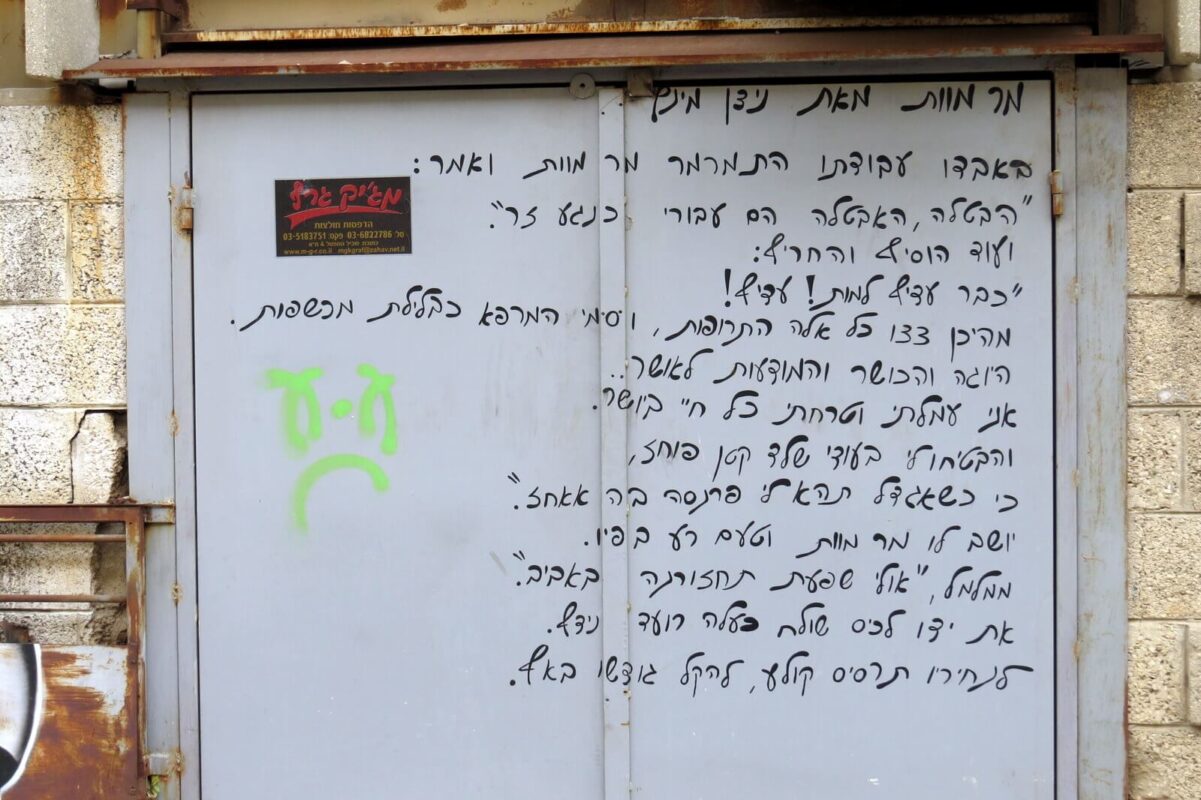 מר מוות מאת ניצן מינץ
באבדו עבודתו התמרמר מר מוות ואמר:
"הבטלה, האבטלה הם עבורי כנגע זר".
ועוד הוסיף והחריף:
"כבר עדיף למות! עדיף!
מהיכן צצו כל אלה התרופות, וסימי המרפא כבלילת מכשפות.
היוגה והכושר והמודעות לאושר..
אני עמלתי וטרחתי כל חיי ביושר.
והבטיחו לי בעודי שלד קטן פוחז,
כי כשאגדל תהא לי פרנסה בה אאחז".
יושב לו מר מוות וטעם רע בפיו.
ממלמל, "אולי שפעת תחזורנה באביב".
את ידו לכיס שולח כעלה רועד נידף.
לנחיריו תרסיס קולע, להקל גודשו באף.
מג'יק גרף
הדפסות חולצות
טל' 03-6822786 פקס: 03-5183751
www.m-g-r.co.il mgkgraf@zahav.net.il